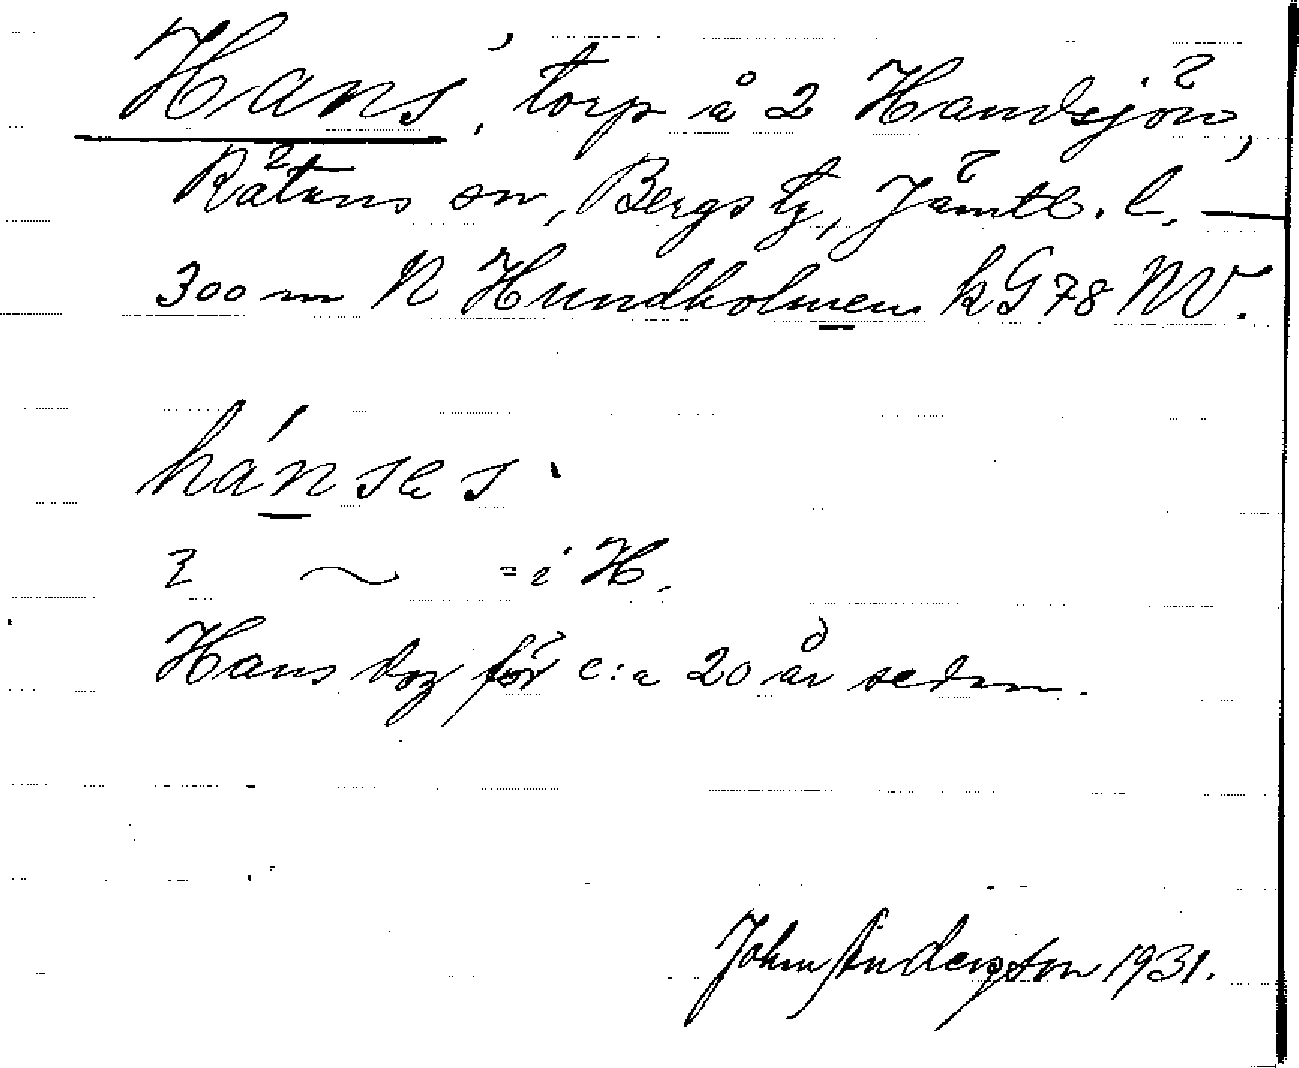 Hans', torp å 2 Handsjön,
Rätans sn, Bergs tg, Jämtl. l. —
300 m N Hundholmen kG78 NV.
hánses.
2 ~ = i H.
Hans dog för c:a 20 år sedan.
John Andersson 1931.